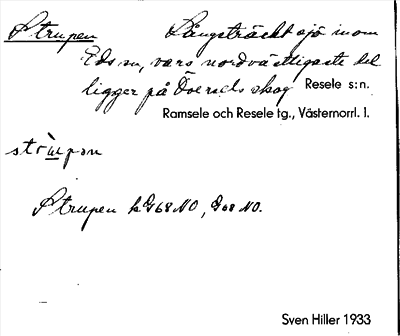 Strupen Långsträckt sjö inom
Eds sn, vars nordvästligaste del
ligger på Övereds skog Resele s:n.
Ramsele och Resele tg., Västernorrl. l.
Strupen k. G68 NO, G68 NO.
Sven Hiller 1933